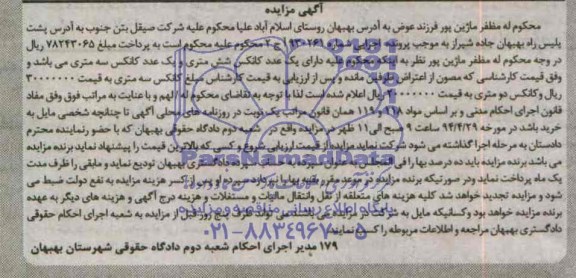 آگهی مزایده
محکوم له مظفر ماژین پور فرزند عوض به آدرس بهبهان روستای اسلام آباد علیا محکوم علیه شرکت صیقل بتن جنوب به آدرس پشت
پلیس راه بهبهان جاده شیراز به موجب پرونده اجرایی شماره ج ۲ محکوم علیه محکوم است به پرداخت مبلغ ۷۸۲۴۳۰۶۵ ریال
در وجه محکوم له مظفر ماژین پور نظر به اینکه محکوم علیه دارای یک عدد کانکس شش متری و یک عدد کانکس سه متری می باشد و
وفق قیمت کارشناسی که مصون از اعتراض طرفین مانده و پس از ارزیابی به قیمت کارشناس مبلغ کانکس سه متری به قیمت ۳۰۰۰۰۰۰۰
ریال و کانکس دو متری به قیمت ریال اعلام شده است لذا با توجه به تقاضای محکوم له / لهم و با عنایت به مراتب فوق وفق مفاد
قانون اجرای احکام مدنی و بر اساس مواد ۱۱۸ و ۱۱۹ همان قانون مراتب یک نوبت در روزنامه های محلی آگهی تا چنانچه شخصی مایل به
خرید باشد در مورخه ۹۴/۴/۲۹ ساعت ۹ صبح الی ۱۱ ظهر در مزایده واقع در شعبه دوم دادگاه حقوقی بهبهان که با حضور نماینده محترم
دادستان به مرحله اجرا گذاشته می شود شرکت نماید مزایده از قیمت ارزیابی شروع و کسی که بالاترین قیمت را پیشنهاد نماید برنده مزایده
می باشد برنده مزایده باید ده درصد بها را فی دادگستری بهبهان تودیع نماید و مابقی را ظرف مدت
یک ماه پرداخت نماید و در صورتیکه برنده مزایده در موعد مقرر بقیه بها را نپردازد سپرده او پس از کسر هزینه مزایده به نفع دولت ضبط می
شود و مزایده تجدید خواهد شد کلیه هزینه های متعلقه از نقل و انتقال مالیات و مستغلات و هزینه درج آگهی و هزینه های دیگر به عهده
برنده مزایده خواهد بود و کسانیکه مایل به شرکت در مزایده می توانند روز قبل از مزایده به شعبه اجرای احکام حقوقی
دادگستری بهبهان مراجعه و اطلاعات مربوطه را کسب نمایند
۱۷۹ مدیر اجرای احکام شعبه دوم دادگاه حقوقی شهرستان بهبهان
ParsNamadData
پایگاه اطلاع رسانی مناقصه و مزایده
۰۲۱-۸۸۳۴۹۶۷۰-۵